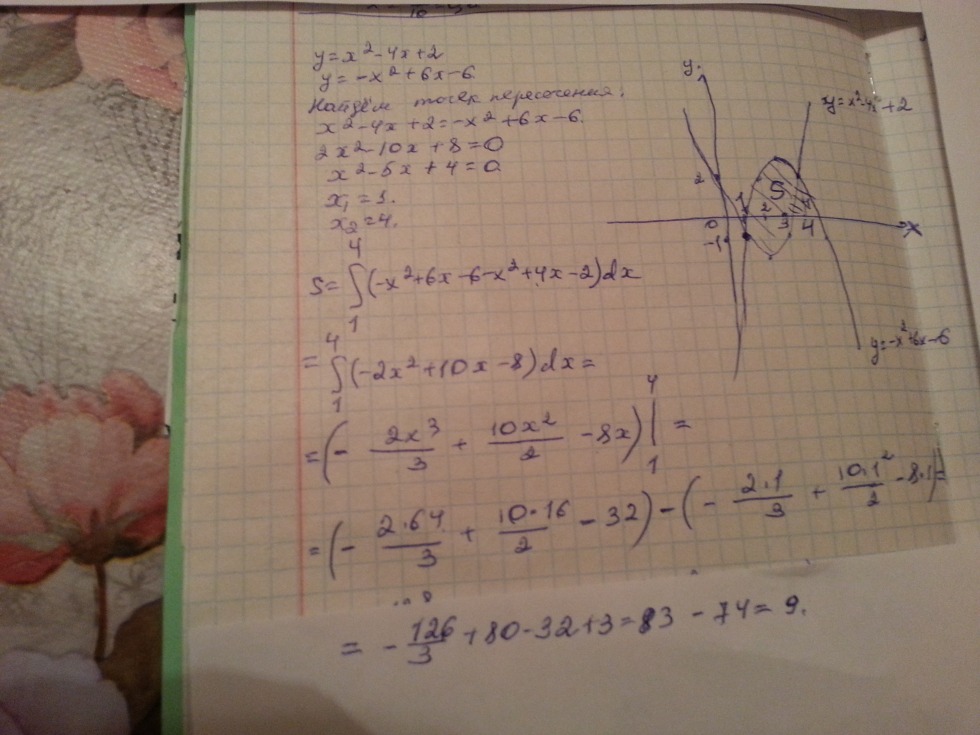 y=x²-4x+2
y=-x²+6x-6.
Найдём точек пересечения:
x²-4x+2=-x²+6x-6.
2x²-10x+8=0
x²-5x+4=0
x₁=1.
x₂=4.
S=∫₁⁴(-x²+6x-6-x²+4x-2)dx
=∫₁⁴(-2x²+10x-8)dx=
=(-2x³/3+10x²/2-8x)|₁⁴=
=(-2·64/3+10·16/2-32)-(-2·1/3+10·1²/2-8·1)=
=-126/3+80-32+3=83-74=9.
y
y=x²-4x+2
2
S
1
2
0
3
4
x
-1
y=-x²+6x-6